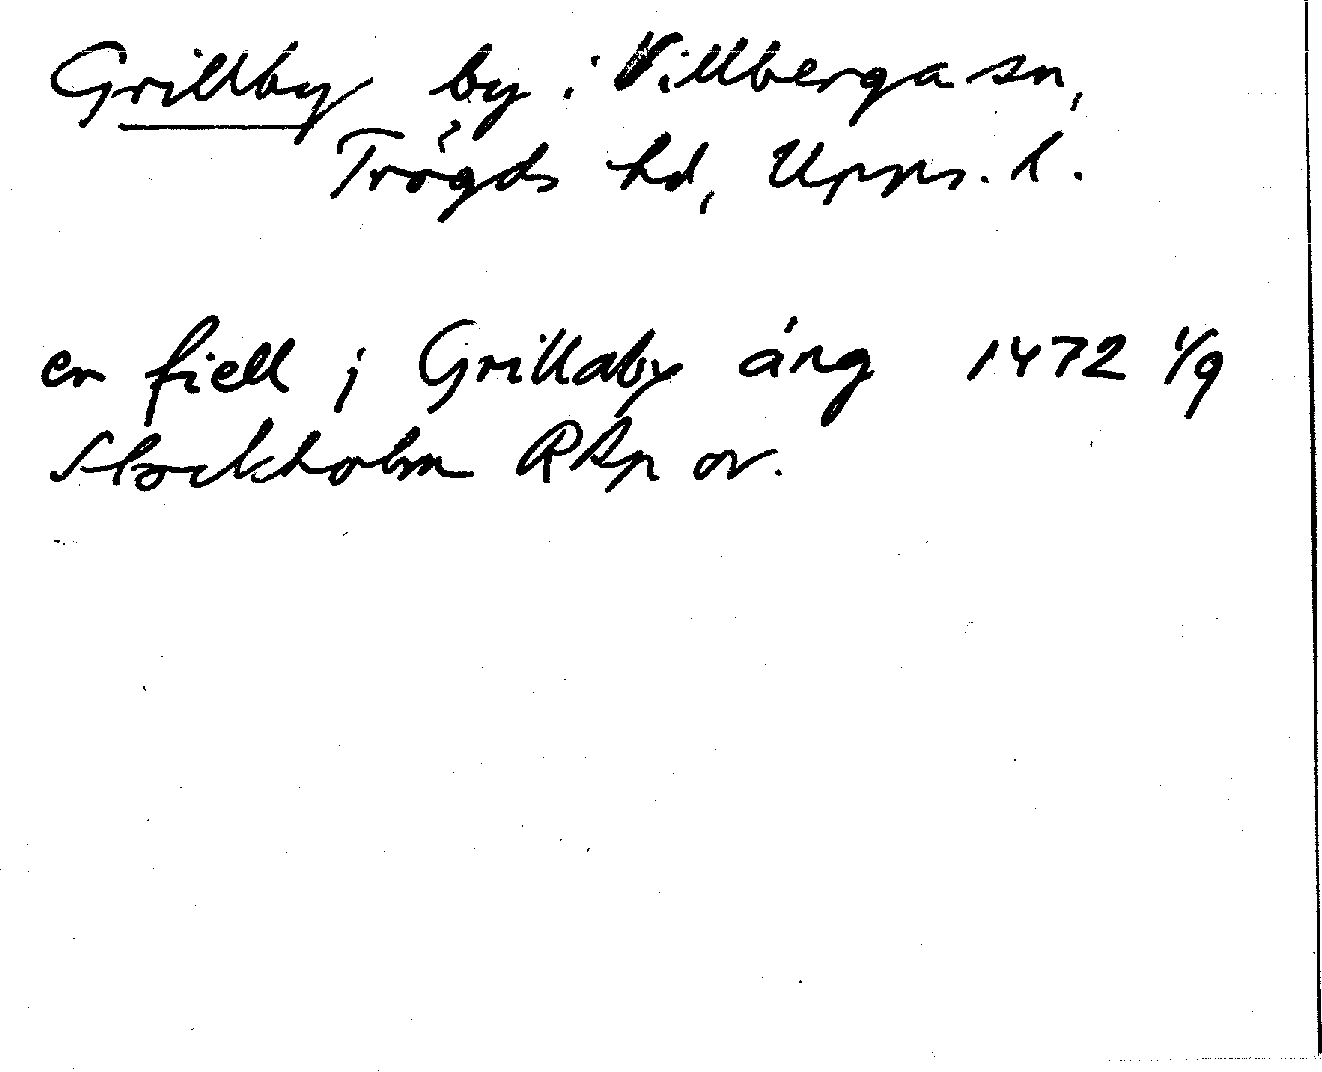 Grillby by i Villberga sn,
Trögds hd, Upps. l.
en fiell j Grillaby äng 1472 1/9
Stockholm RAp or.